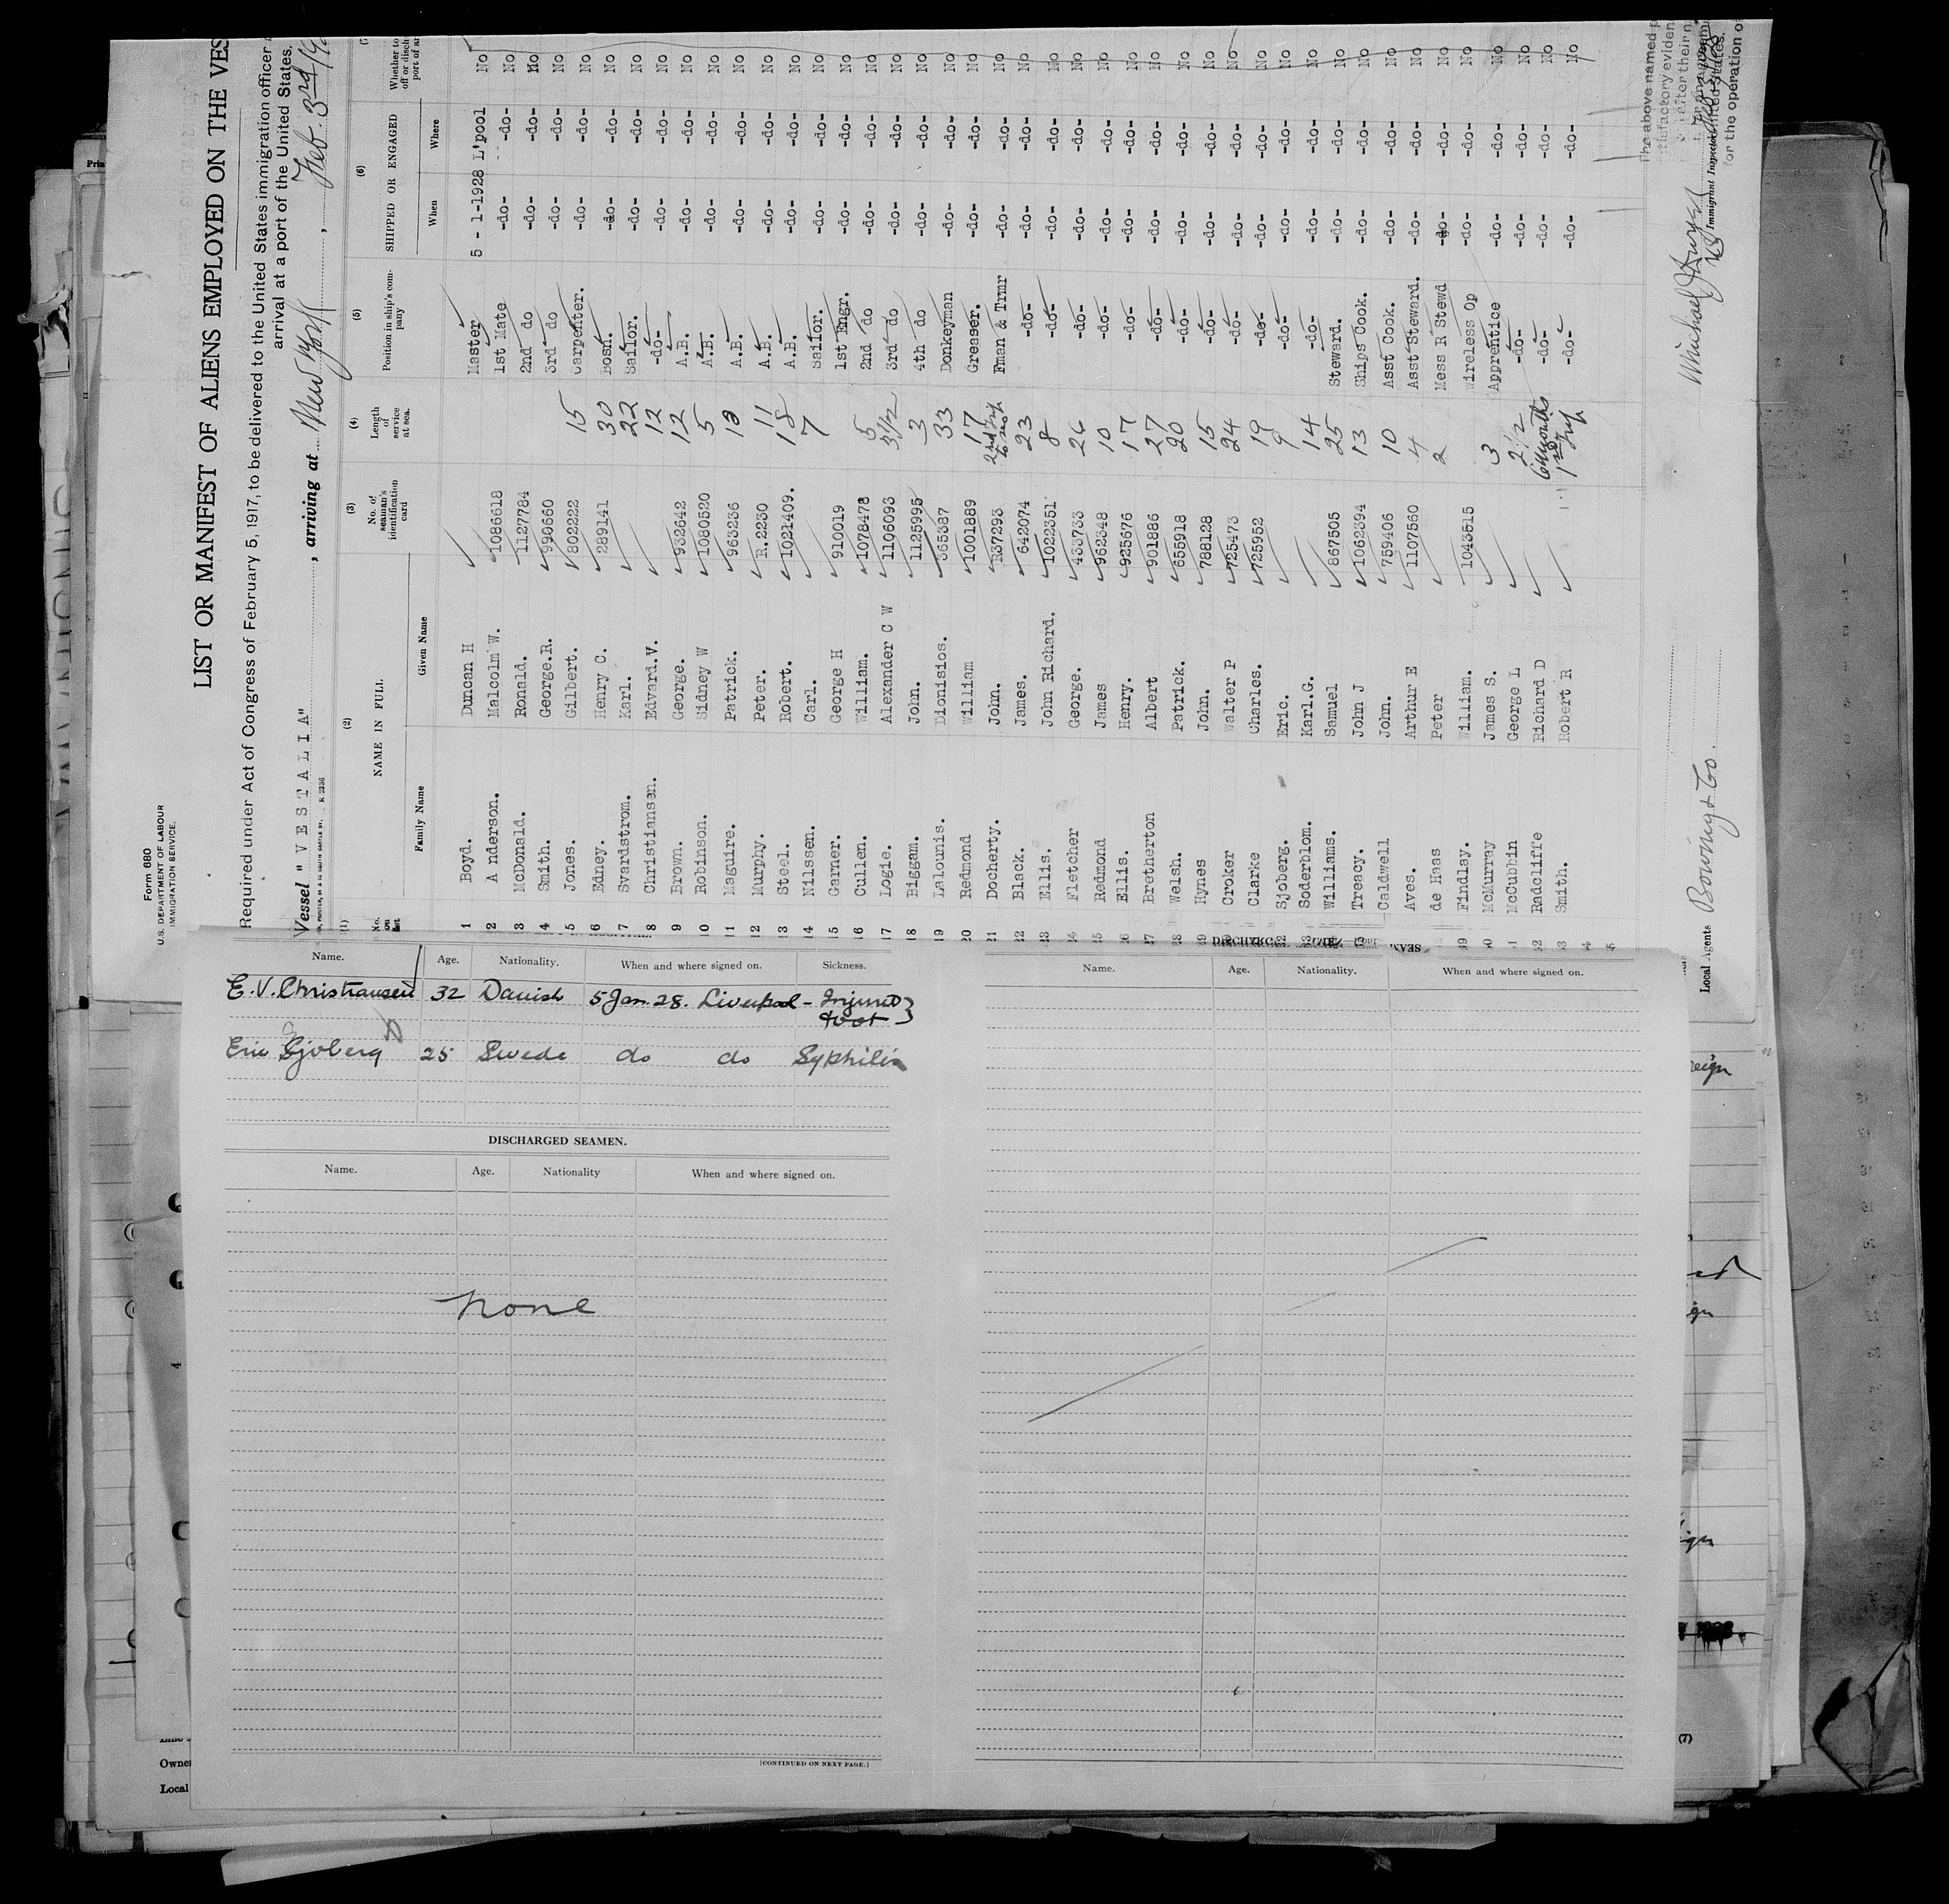 Form 680
U.S. DEPARTMENT OF LABOUR
IMMIGRATION SERVICE.
LIST OR MANIFEST OF ALIENS EMPLOYED ON THE VES
Required under Act of Congress of February 5, 1917, to be delivered to the United States immigration officer
arrival at a port of the United States.
Vessel " V E S T A L I A" , arriving at New York , Feb. 3rd
(1) (2) (3) (4) (5) (6)
No. on list NAME IN FULL No. of seaman's identification card Length of service at sea. Position in ship's company SHIPPED OR ENGAGED Whether to
Family Name Given Name When Where
1 Boyd. Duncan H Master 5 - 1-1928 L'pool No
2 A nderson. Malcolm W. 1086618 1st Mate -do- -do- No
3 McDonald. Ronald. 1127784 2nd do -do- -do- No
4 Smith. George.R. 990660 3rd do -do- -do- No
5 Jones. Gilbert. 802222 15 Carpenter. -do- -do- No
6 Edney. Henry C. 289141 30 Bosn. -do- -do- No
7 Svardstrom. Karl. 22 Sailor. -do- -do- No
8 Christiansen. Edvard.V. 12 -do- -do- -do- No
9 Brown. George. 932642 12 A.B. -do- -do- No
10 Robinson. Sidney W 1080520 5 A.B. -do- -do- No
11 Maguire. Patrick. 963236 A.B. -do- -do- No
12 Murphy. Peter. R.2230 11 A.B. -do- -do- No
13 Steel. Robert. 1021409. 18 A.B. -do- -do- No
14 Nilssen. Carl. 7 Sailor. -do- -do- No
15 Garner. George H 910019 1st Engr. -do- -do- No
16 Cullen. William. 1078478 5 2nd do -do- -do- No
17 Logie. Alexander C W 1106093 3½ 3rd do -do- -do- No
18 Biggam. John. 1125995 3 4th do -do- -do- No
19 Lalounis. Dionisios. 865387 33 Donkeyman -do- -do- No
20 Redmond William 1001889 17 Greaser. -do- -do- No
21 Docherty. John. R37293 Fman & Trmr -do- -do- No
22 Black. James. 642074 23 -do- -do- -do- No
23 Ellis. John Richard. 1022351 8 -do- -do- -do- No
24 Fletcher George. 433733 26 -do- -do- -do- No
25 Redmond James 962348 10 -do- -do- -do- No
26 Ellis. Henry. 925676 17 -do- -do- -do- No
27 Bretherton Albert 901886 27 -do- -do- -do- No
28 Welsh. Patrick. 655918 20 -do- -do- -do- No
29 Hynes John. 788128 15 -do- -do- -do- No
Croker Walter P 725473 24 -do- -do- -do- No
Clarke Charles. 725952 19 -do- -do- -do- No
Sjoberg. Eric. 9 -do- -do- -do- No
Soderblom. Karl.G. 14 -do- -do- -do- No
Williams. Samuel 867505 25 Steward. -do- -do- No
Treacy. John J 1062394 13 Ships Cook. -do- -do- No
Caldwell John. 759406 10 Asst Cook. -do- -do- No
Aves. Arthur E 1107560 4 Asst Steward. -do- -do- No
de Haas Peter 2 Mess R Stewd -do- -do- No
39 Findlay. William. 1043515 Wireless Op -do- -do- No
McMurray James S. 3 Apprentice -do- -do- No
McCubbin George L 2½ -do- -do- -do- No
Radcliffe Richard D 6 Months -do- -do- -do- No
Smith. Robert R 1st Trip -do- -do- -do- No
Local Agents Bowring & Co.
Immigrant Inspector
The above named
or the operation o
Name. Age. Nationality. When and where signed on. Sickness.
E.V. Christiansen 32 Danish 5 Jan. 28. Liverpool - Injured foot
Eric Sjoberg 25 Swede do do Syphilis
DISCHARGED SEAMEN.
Name. Age. Nationality When and where signed on.
None
[CONTINUED ON NEXT PAGE.]
Name. Age. Nationality. When and where signed on.
Owner
Local